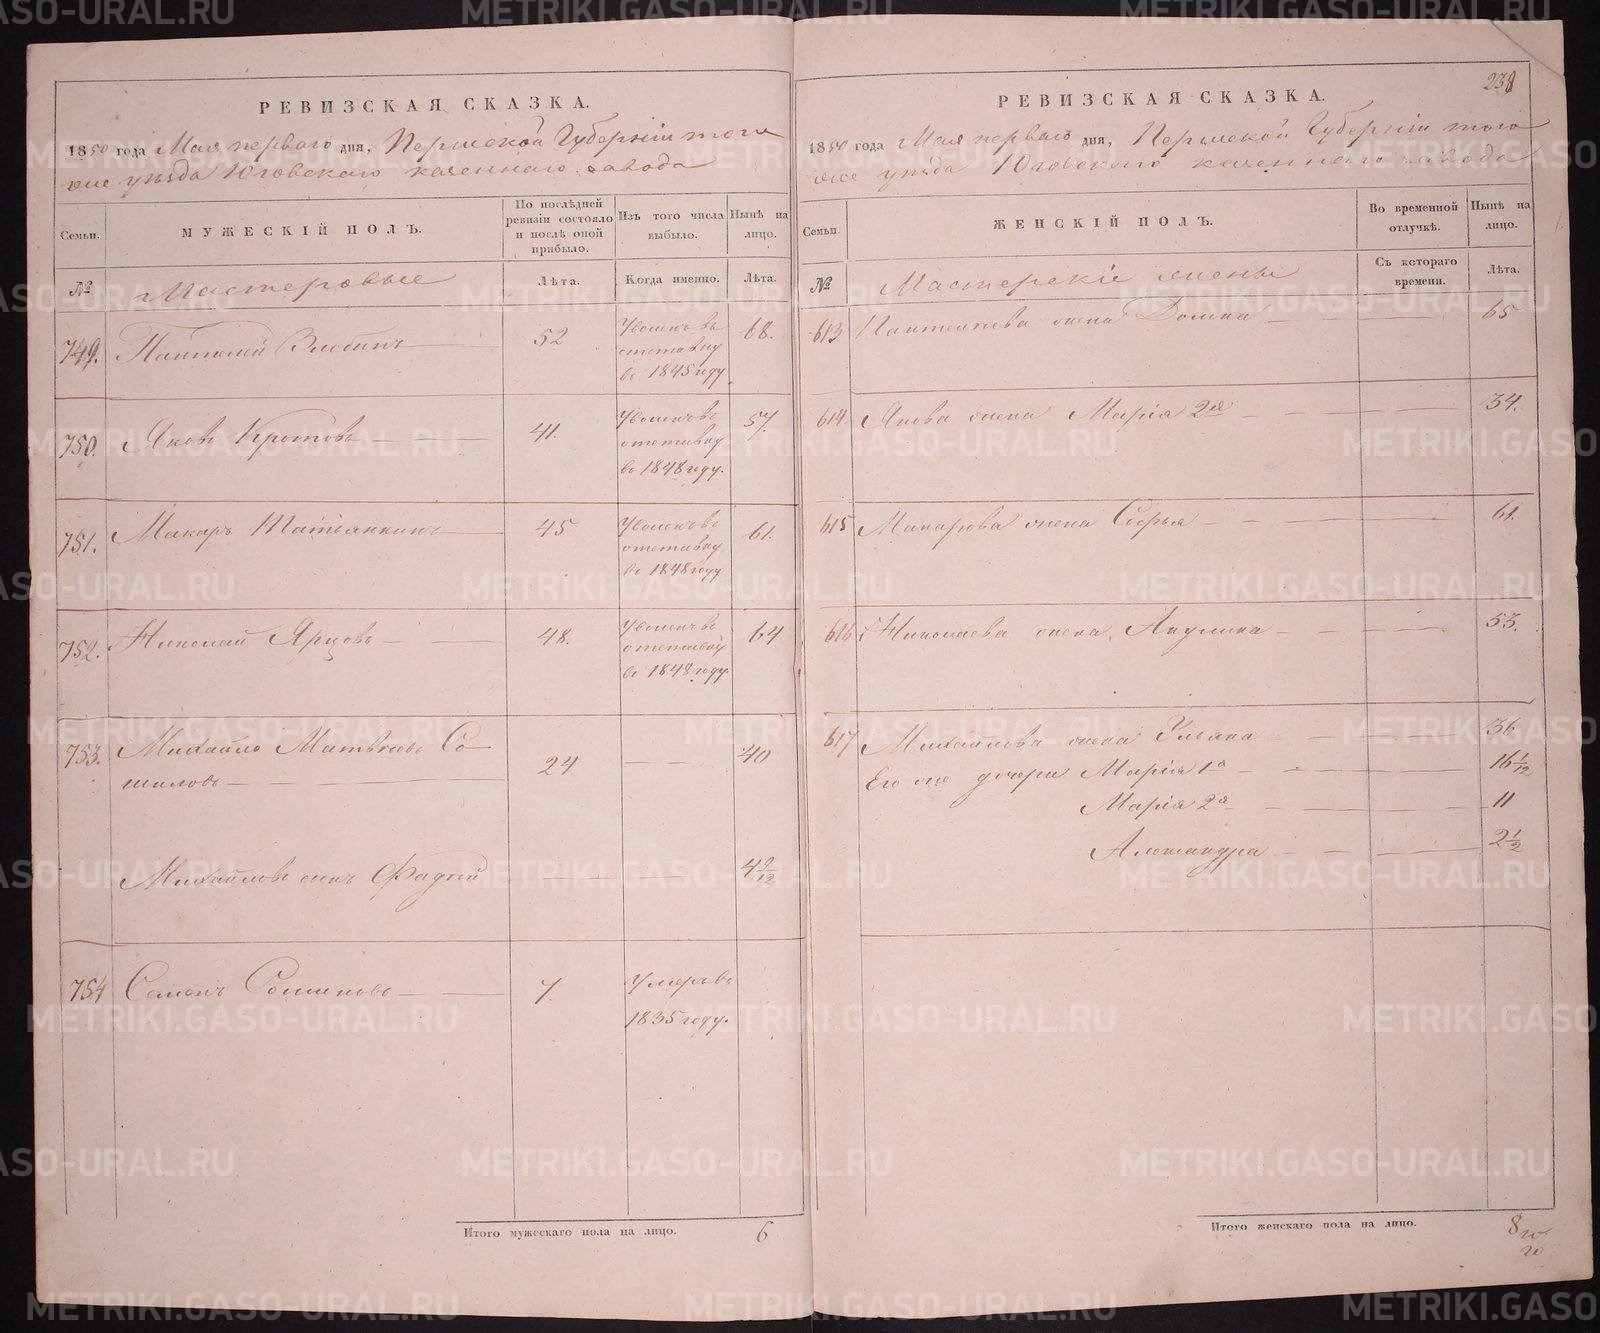 РЕВИЗСКАЯ СКАЗКА.
1850 года Мая перваго дня, Пермской Губерніи того
же уѣзда Юговскаго казеннаго завода
Семьи.
МУЖЕСКІЙ ПОЛЪ.
По послѣдней ревизіи состояло и послѣ оной прибыло.
Изъ того числа выбыло.
Нынѣ на лицо.
№
Мастеровые
Лѣта.
Когда именно.
Лѣта.
749. Пантелей Злобинъ 52 Уволенъ въ 68.
отставку
въ 1845 году
750. Яковъ Кротовъ 41. Уволенъ въ 57.
отставку
въ 1848 году.
751. Макаръ Татьянкинъ 45 Уволенъ въ 61.
отставку
въ 1848 году
752. Николай Ярцовъ 48. Уволенъ въ 64
отставку
въ 1848 году.
753. Михайло Матвѣевъ Со- 24 40
шиловъ
Михайловъ сынъ Фадѣй 4 2/12
754 Семенъ 7. Умеръ въ
1835 году.
Итого мужескаго пола на лицо. 6
238
РЕВИЗСКАЯ СКАЗКА.
1850 года Мая перваго дня, Пермской Губерніи того
же уѣзда Юговскаго казеннаго завода
Семьи.
ЖЕНСКІЙ ПОЛЪ.
Во временной отлучкѣ.
Нынѣ на лицо.
№
Мастерскіе жены
Съ котораго времени.
Лѣта.
613 Пантелеева жена Домна 65
614 Якова жена Марія 2я 34.
615 Макарова жена Софья 61.
616 Николаева жена Акулина 53.
617 Михайлова жена Ульяна 36.
Его же дочери Марія 1а 16 1/12
Марія 2а 11
Александра 2 1/2
Итого женскаго пола на лицо. 8
METRIKI.GASO-URAL.RU